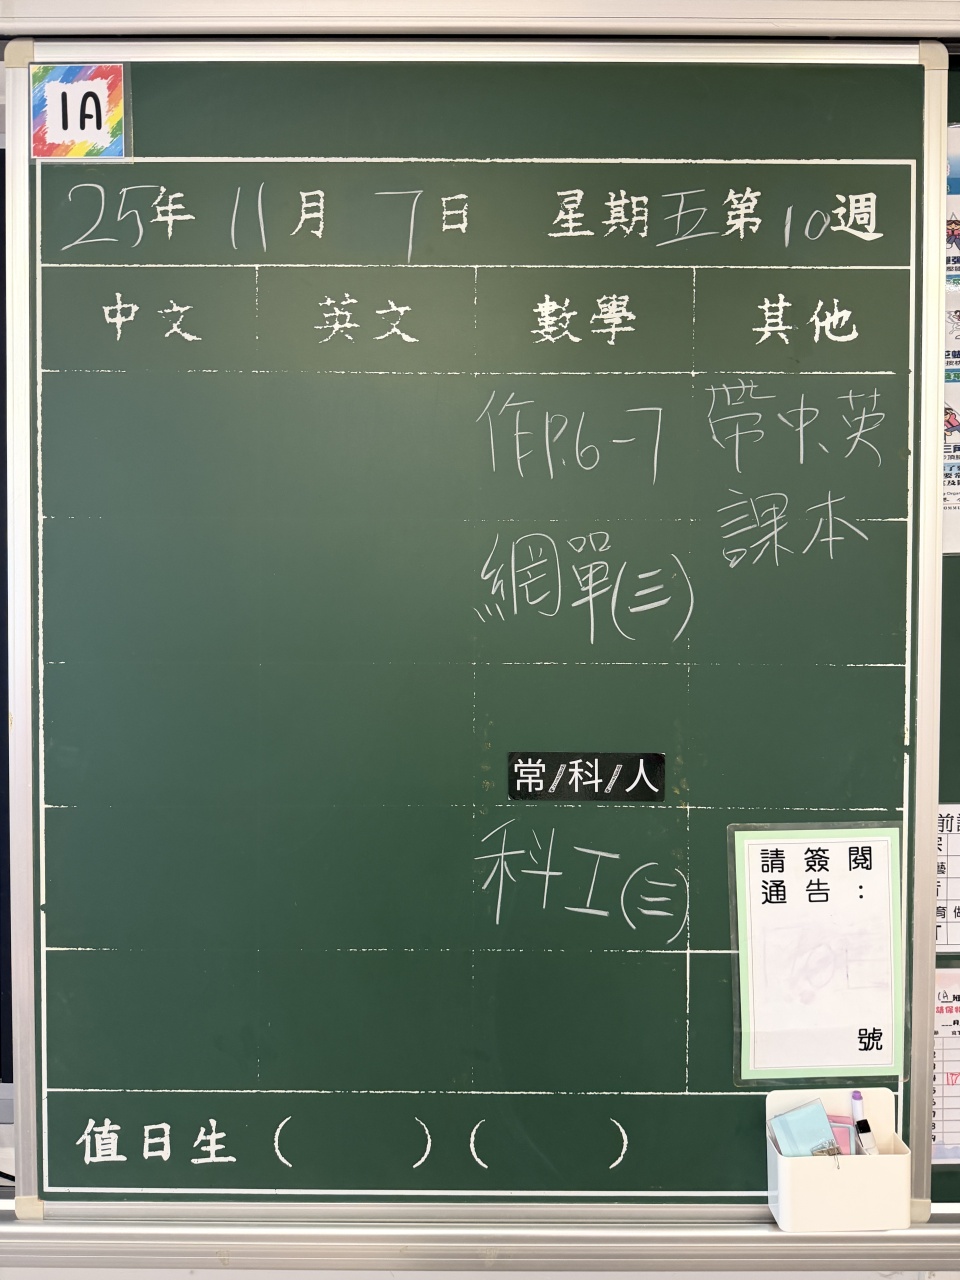 1A
25年 11月 7日 星期五第10週
中文 英文 數學 其他
作P.6-7 帶中英
課本
網單(三)
常/科/人
科工(三)
請簽閱
通告：
號
值日生 ( ) ( )